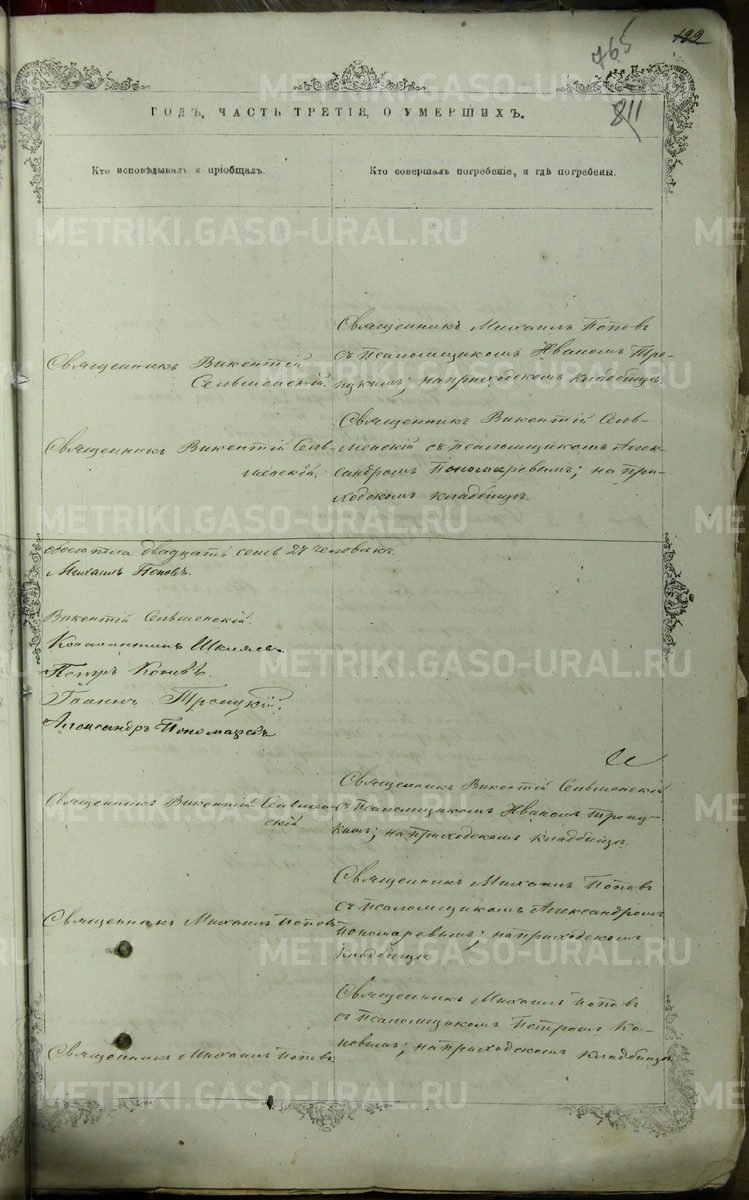 765
122
811
ГОДЪ, ЧАСТЬ ТРЕТІЯ, О УМЕРШИХЪ.
Кто исповѣдывалъ и пріобщалъ.
Кто совершалъ погребеніе, и гдѣ погребены.
Священникъ Викентій
Сельменскій.
Священникъ Михаилъ Поповъ
съ псаломщикомъ Иваномъ Тро-
ицкимъ; на приходскомъ кладбищѣ.
Священникъ Викентій Сель-
менскій.
Священникъ Викентій Сель-
менскій съ псаломщикомъ Алек-
сандромъ Пономаревымъ; на при-
ходскомъ кладбищѣ.
обоего пола двадцать семь 27 человѣкъ.
Михаилъ Поповъ.
Викентій Сельменскій.
Константинъ Шиляевъ
Петръ Коневъ.
Іоаннъ Троицкій.
Александръ Пономаревъ
Священникъ Викентій Сельмен-
скій
Священникъ Викентій Сельменскій
съ псаломщикомъ Иваномъ Троиц-
кимъ; на приходскомъ кладбищѣ.
Священникъ Михаилъ Поповъ
Священникъ Михаилъ Поповъ
съ псаломщикомъ Александромъ
Пономаревымъ; на приходскомъ
кладбищѣ
Священникъ Михаилъ Поповъ
Священникъ Михаилъ Поповъ
съ псаломщикомъ Петромъ Ко-
невымъ; на приходскомъ кладбищѣ
METRIKI.GASO-URAL.RU